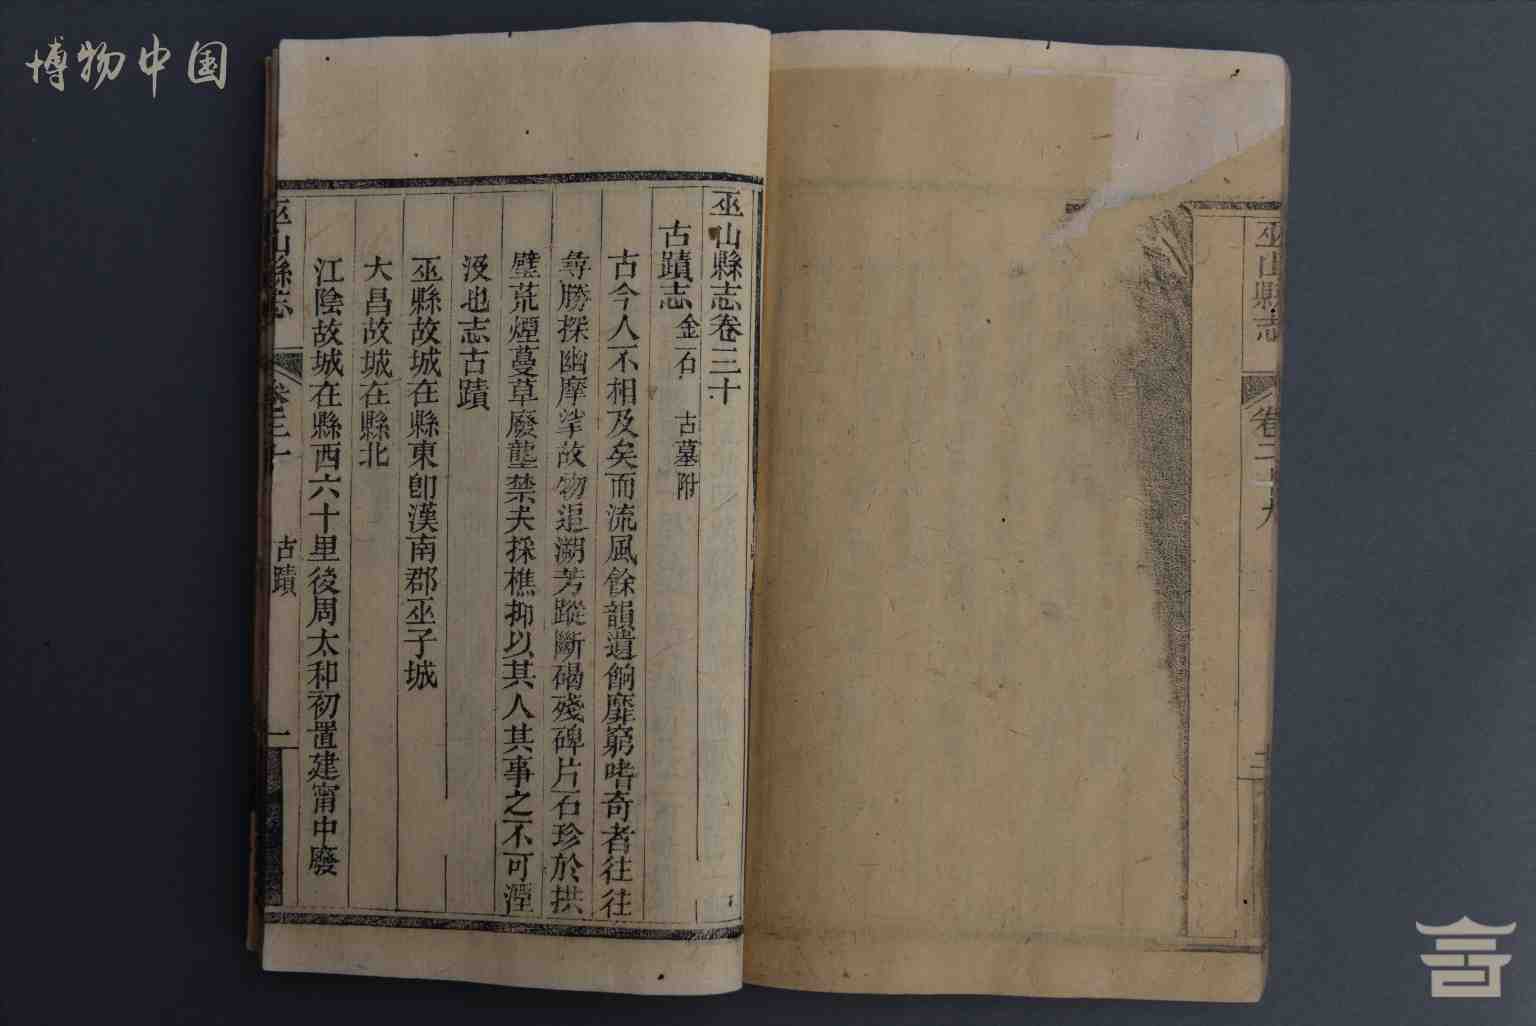 博物中国
巫山縣志
卷二十九
巫山縣志卷三十
古蹟志 金石 古墓附
古今人不相及矣而流風餘韻遺餉靡窮嗜奇者往往
尋勝探幽摩挲故物追溯芳蹤斷碣殘碑片石珍於拱
璧荒煙蔓草廢壟禁夫採樵抑以其人其事之不可湮
沒也志古蹟
巫縣故城在縣東卽漢南郡巫子城
大昌故城在縣北
江陰故城在縣西六十里後周太和初置建甯中廢
巫山縣志
卷三十
古蹟
一